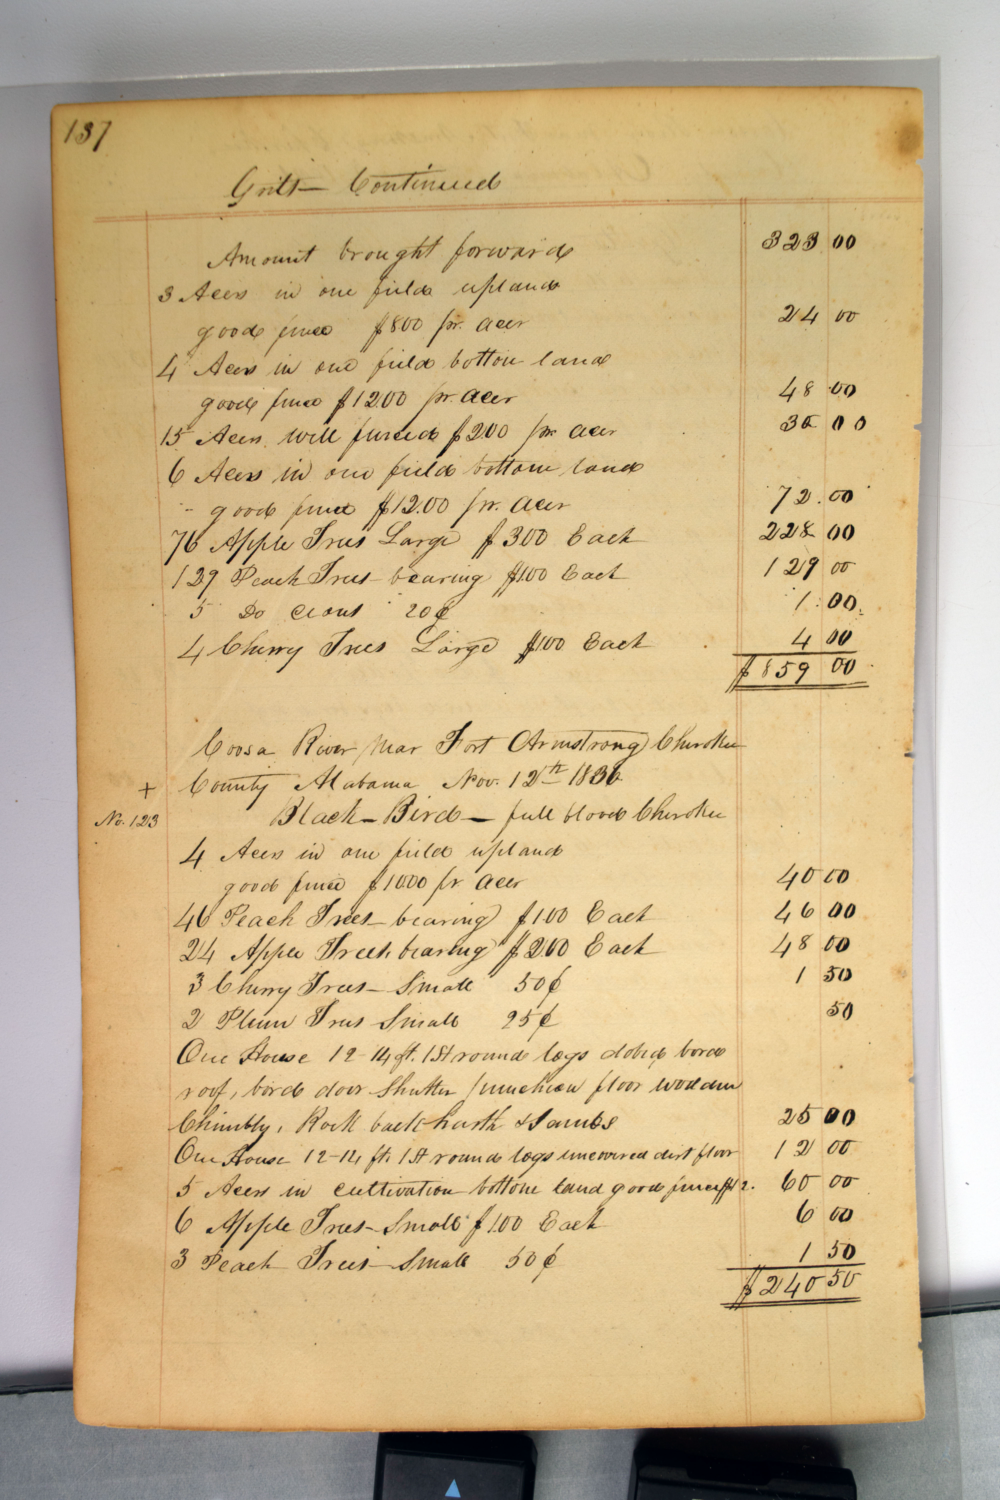 137
Grits Continued
Amount brought forward 323 00
3 Acers in one field upland
good fence $800 pr. acer 24 00
4 Acers in one field bottom land
good fence $12.00 pr. acer 48 00
15 Acers well fenced $200 pr. acer 30 00
6 Acers in one field bottom land
good fence $12.00 pr. acer 72.00
76 Apple Trees Large $300 Each 228 00
129 Peach Trees bearing $100 Each 129 00
5 Do cions 20¢ 1.00
4 Cherry Trees Large $100 Each 4 00
$859 00
Coosa River near Fort Armstrong Cherokee
+ County Alabama Nov. 12th 1836
No. 123 Black-Bird - full blood Cherokee
4 Acers in one field upland
good fence $1000 pr acer 40 00
46 Peach Trees bearing $1.00 Each 46 00
24 Apple Trees bearing $200 Each 48 00
3 Cherry Trees - Small 50¢ 1 50
2 Plum Trees Small 25¢ 50
One House 12-14 ft. 1St round logs dobed bord
roof, bord door shutter puncheon floor wooden
Chimbly, Rock back harth & Jambs 25 00
One House 12-14 ft. 1St round logs uncovered dirt floor 12 00
5 Acers in cultivation bottom land good fence $12. 60 00
6 Apple Trees - Small $1.00 Each 6 00
3 Peach Trees Small 50¢ 1 50
$240 50